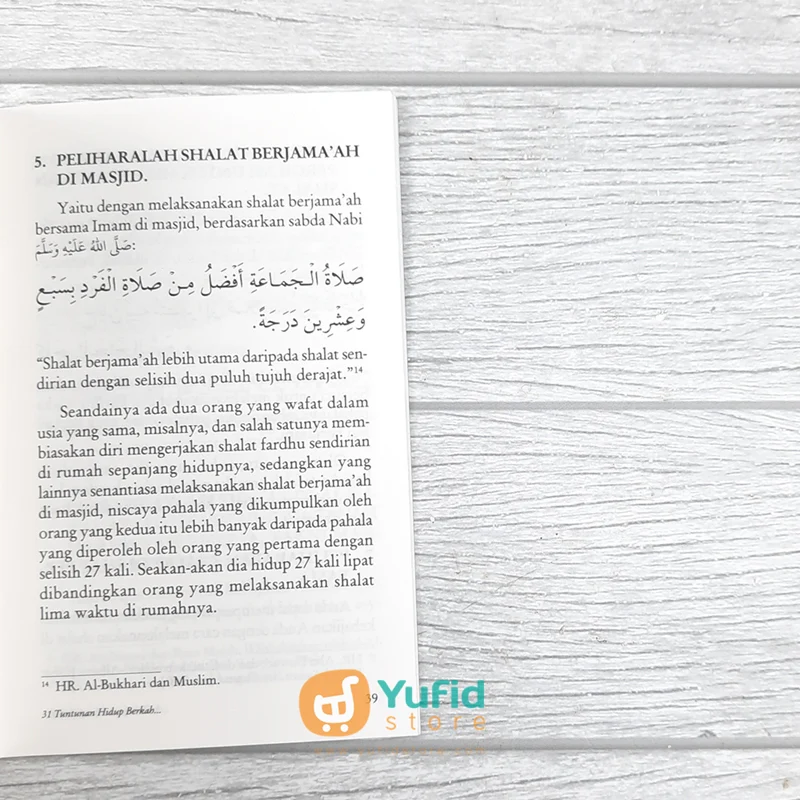 5. PELIHARALAH SHALAT BERJAMA'AH
DI MASJID.
Yaitu dengan melaksanakan shalat berjama'ah
bersama Imam di masjid, berdasarkan sabda Nabi
صَلَّى اللهُ عَلَيْهِ وَسَلَّمَ:
صَلَاةُ الْجَمَاعَةِ أَفْضَلُ مِنْ صَلَاةِ الْفَرْدِ بِسَبْعٍ
وَعِشْرِينَ دَرَجَةً.
“Shalat berjama'ah lebih utama daripada shalat sen-
dirian dengan selisih dua puluh tujuh derajat.”¹⁴
Seandainya ada dua orang yang wafat dalam
usia yang sama, misalnya, dan salah satunya mem-
biasakan diri mengerjakan shalat fardhu sendirian
di rumah sepanjang hidupnya, sedangkan yang
lainnya senantiasa melaksanakan shalat berjama'ah
di masjid, niscaya pahala yang dikumpulkan oleh
orang yang kedua itu lebih banyak daripada pahala
yang diperoleh oleh orang yang pertama dengan
selisih 27 kali. Seakan-akan dia hidup 27 kali lipat
dibandingkan orang yang melaksanakan shalat
lima waktu di rumahnya.
¹⁴ HR. Al-Bukhari dan Muslim.
31 Tuntunan Hidup Berkah...
39
Yufid
store